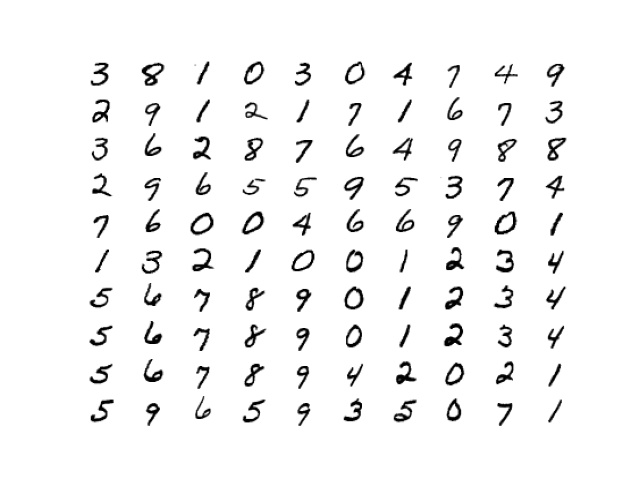 3 8 1 0 3 0 4 7 4 9
2 9 1 2 1 7 1 6 7 3
3 6 2 8 7 6 4 9 8 8
2 9 6 5 5 9 5 3 7 4
7 6 0 0 4 6 6 9 0 1
1 3 2 1 0 0 1 2 3 4
5 6 7 8 9 0 1 2 3 4
5 6 7 8 9 0 1 2 3 4
5 6 7 8 9 4 2 0 2 1
5 9 6 5 9 3 5 0 7 1